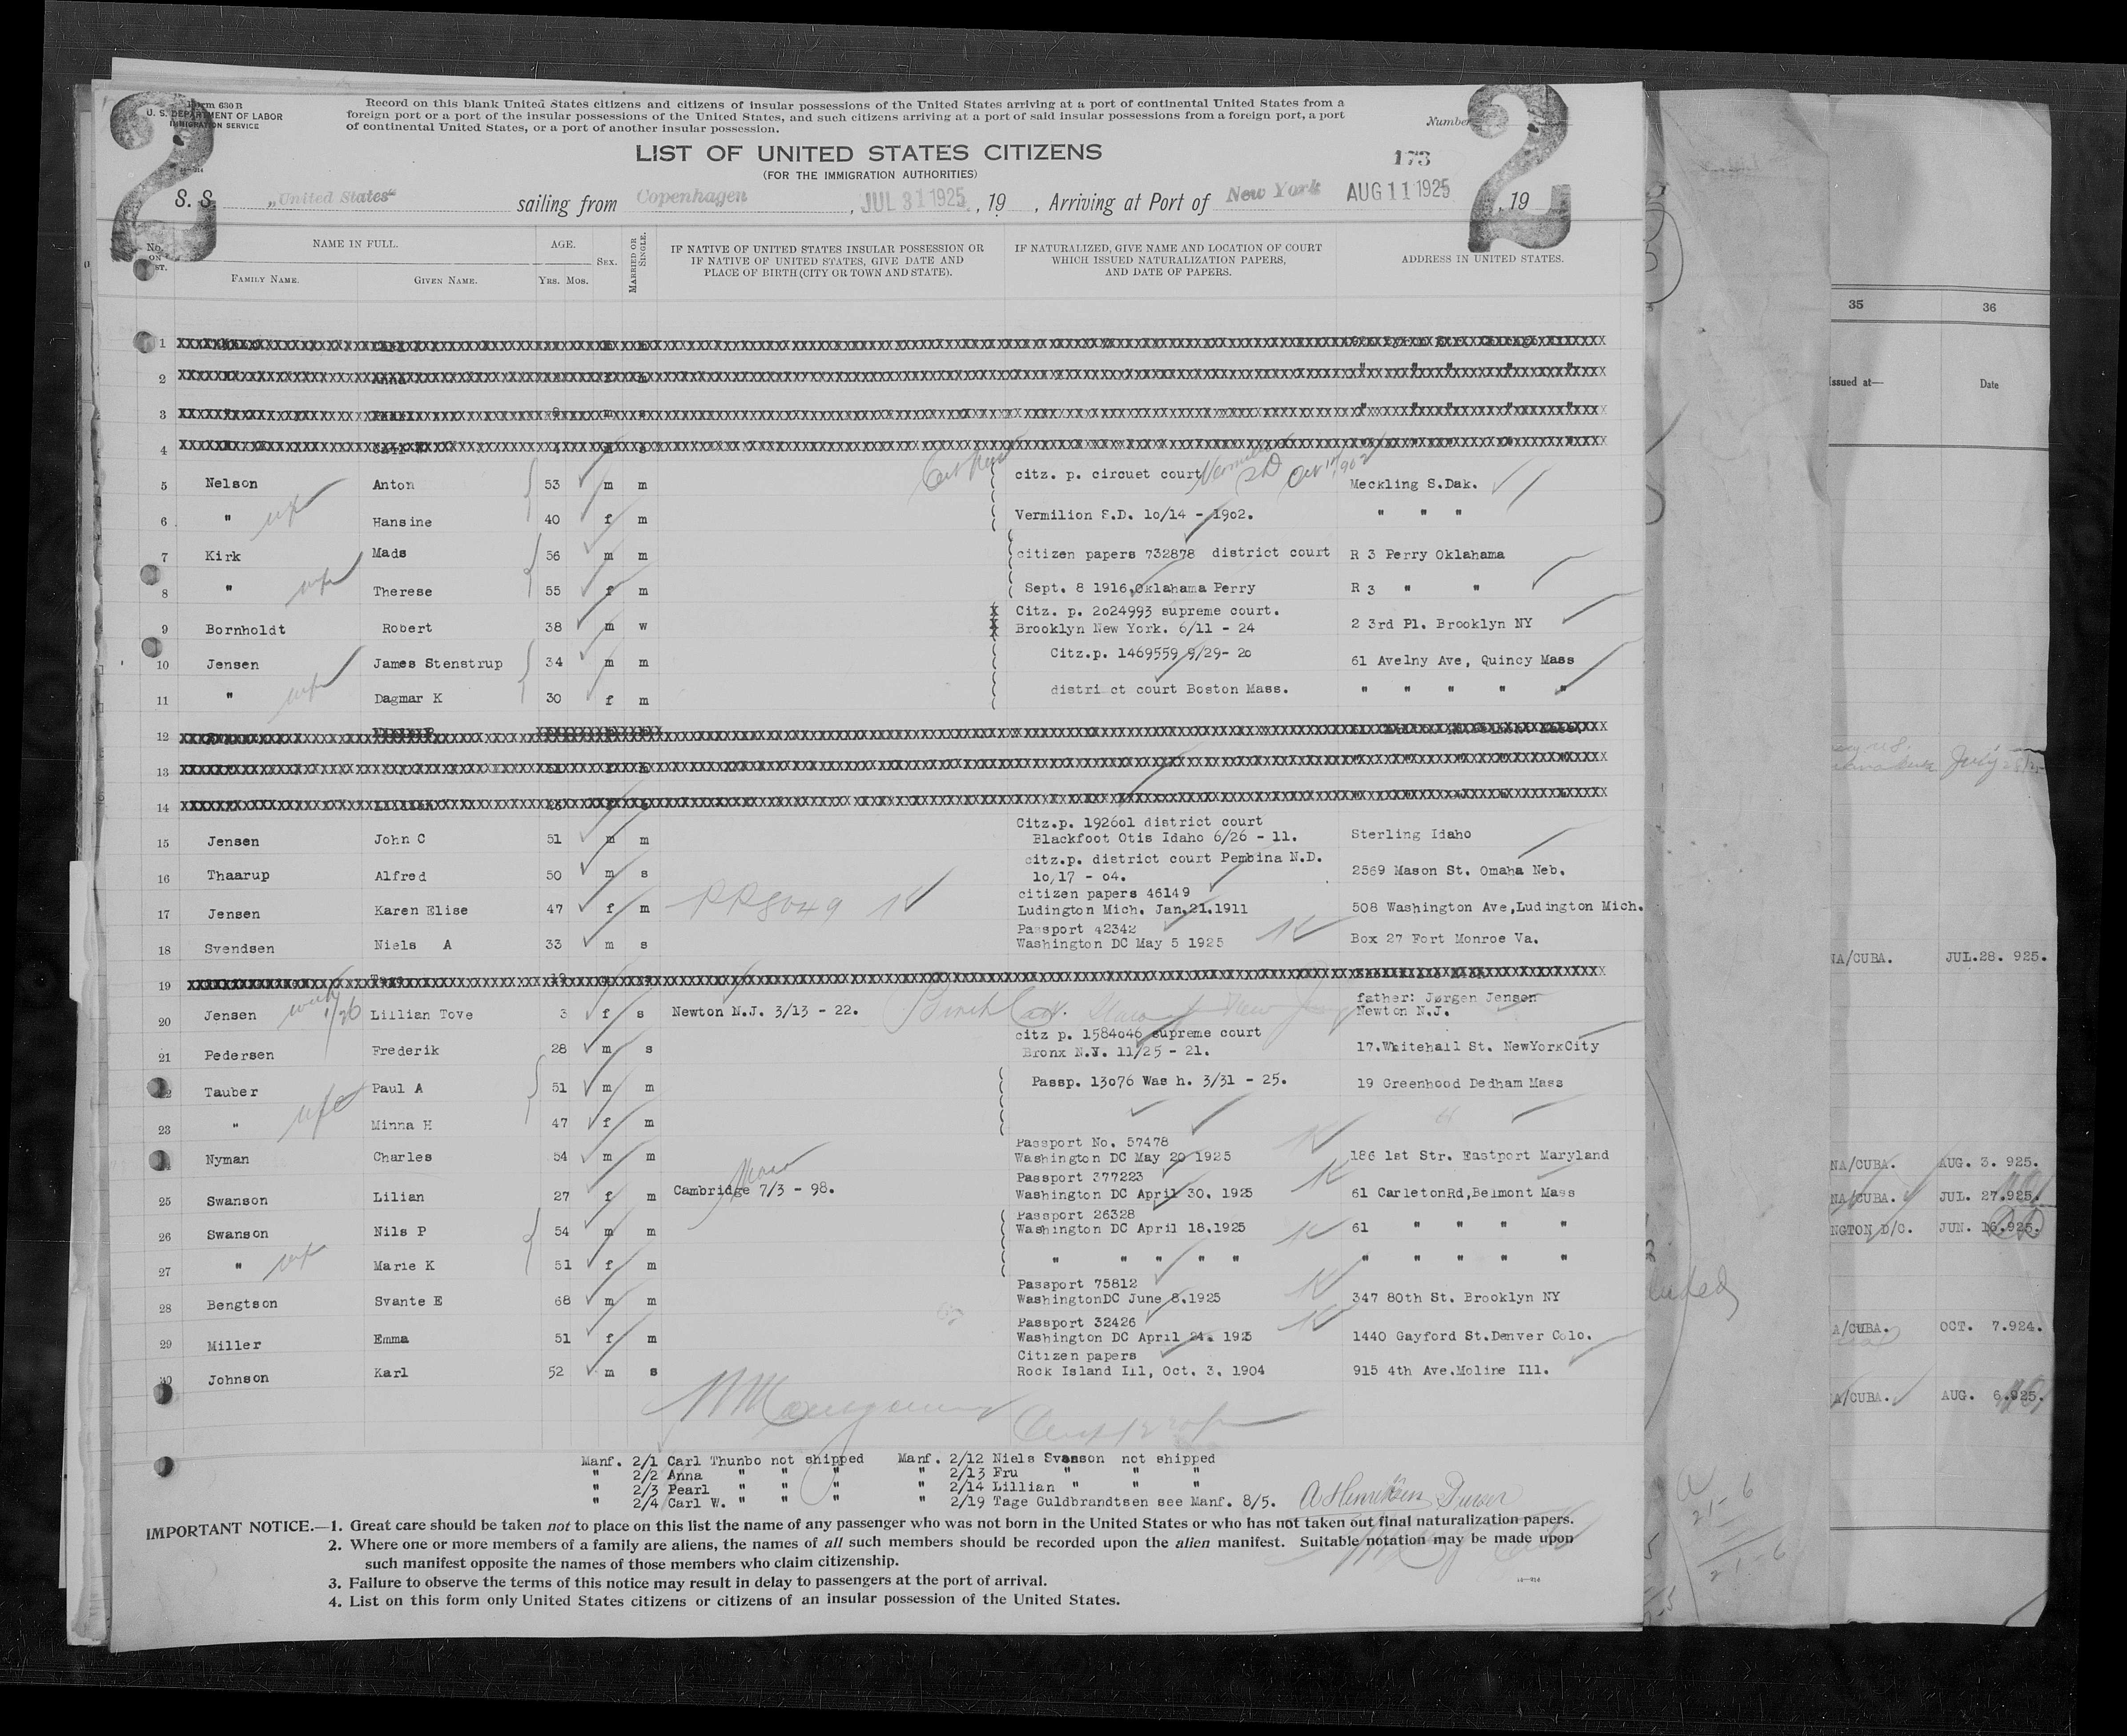 Form 630 B
U. S. DEPARTMENT OF LABOR
IMMIGRATION SERVICE
Record on this blank United States citizens and citizens of insular possessions of the United States arriving at a port of continental United States from a
foreign port or a port of the insular possessions of the United States, and such citizens arriving at a port of said insular possessions from a foreign port, a port
of continental United States, or a port of another insular possession.
Number
2 2
LIST OF UNITED STATES CITIZENS
(FOR THE IMMIGRATION AUTHORITIES)
173
S. S. „United States" sailing from Copenhagen, JUL 31 1925, 19 , Arriving at Port of New York AUG 11 1925, 19
No. ON LIST. NAME IN FULL. AGE. SEX. MARRIED OR SINGLE. IF NATIVE OF UNITED STATES INSULAR POSSESSION OR IF NATIVE OF UNITED STATES, GIVE DATE AND PLACE OF BIRTH (CITY OR TOWN AND STATE). IF NATURALIZED, GIVE NAME AND LOCATION OF COURT WHICH ISSUED NATURALIZATION PAPERS, AND DATE OF PAPERS. ADDRESS IN UNITED STATES.
FAMILY NAME. GIVEN NAME. YRS. MOS.
1
2
3
4
5 Nelson Anton 53 m m citz. p. circuet court Meckling S.Dak.
6 " Hansine 40 f m Vermilion S.D. 10/14 - 1902. " " "
7 Kirk Mads 56 m m citizen papers 732878 district court R 3 Perry Oklahama
8 " Therese 55 f m Sept. 8 1916,Oklahama Perry R 3 " "
9 Bornholdt Robert 38 m w Citz. p. 2024993 supreme court. Brooklyn New York. 6/11 - 24 2 3rd Pl. Brooklyn NY
10 Jensen James Stenstrup 34 m m Citz.p. 1469559 9/29- 20 61 Avelny Ave, Quincy Mass
11 " Dagmar K 30 f m district court Boston Mass. " " " " "
12
13
14
15 Jensen John C 51 m m Citz.p. 192601 district court Blackfoot Otis Idaho 6/26 - 11. Sterling Idaho
16 Thaarup Alfred 50 m s citz.p. district court Pembina N.D. 10/17 - 04. 2569 Mason St. Omaha Neb.
17 Jensen Karen Elise 47 f m citizen papers 46149 Ludington Mich. Jan.21.1911 508 Washington Ave,Ludington Mich.
18 Svendsen Niels A 33 m s Passport 42342 Washington DC May 5 1925 Box 27 Fort Monroe Va.
19
20 Jensen Lillian Tove 3 f s Newton N.J. 3/13 - 22. father: Jørgen Jensen Newton N.J.
21 Pedersen Frederik 28 m s citz p. 1584046 supreme court Bronx N.Y. 11/25 - 21. 17.Whitehall St. NewYorkCity
22 Tauber Paul A 51 m m Passp. 13076 Wash. 3/31 - 25. 19 Greenhood Dedham Mass
23 " Minna H 47 f m
Nyman Charles 54 m m Passport No. 57478 Washington DC May 20 1925 186 1st Str. Eastport Maryland
25 Swanson Lilian 27 f m Cambridge 7/3 - 98. Mass Passport 377223 Washington DC April 30. 1925 61 CarletonRd,Belmont Mass
26 Swanson Nils P 54 m m Passport 26328 Washington DC April 18.1925 61 " " " "
27 " Marie K 51 f m " " " " " " " " " "
28 Bengtson Svante E 68 m m Passport 75812 WashingtonDC June 8.1925 347 80th St. Brooklyn NY
29 Miller Emma 51 f m Passport 32426 Washington DC April 24. 1925 1440 Gayford St.Denver Colo.
30 Johnson Karl 52 m s Citizen papers Rock Island Ill, Oct. 3. 1904 915 4th Ave.Moline Ill.
Manf. 2/1 Carl Thunbo not shipped Manf. 2/12 Niels Svanson not shipped
" 2/2 Anna " " " " 2/13 Fru " " "
" 2/3 Pearl " " " " 2/14 Lillian " " "
" 2/4 Carl W. " " " " 2/19 Tage Guldbrandtsen see Manf. 8/5.
IMPORTANT NOTICE.—1. Great care should be taken not to place on this list the name of any passenger who was not born in the United States or who has not taken out final naturalization papers.
2. Where one or more members of a family are aliens, the names of all such members should be recorded upon the alien manifest. Suitable notation may be made upon
such manifest opposite the names of those members who claim citizenship.
3. Failure to observe the terms of this notice may result in delay to passengers at the port of arrival.
4. List on this form only United States citizens or citizens of an insular possession of the United States.
35 36
Issued at— Date
NA/CUBA. JUL.28. 925.
NA/CUBA. AUG. 3. 925.
NA/CUBA. JUL. 27.925.
NGTON D/C. JUN. 16.925.
A/CUBA. OCT. 7.924.
A/CUBA. AUG. 6.925.